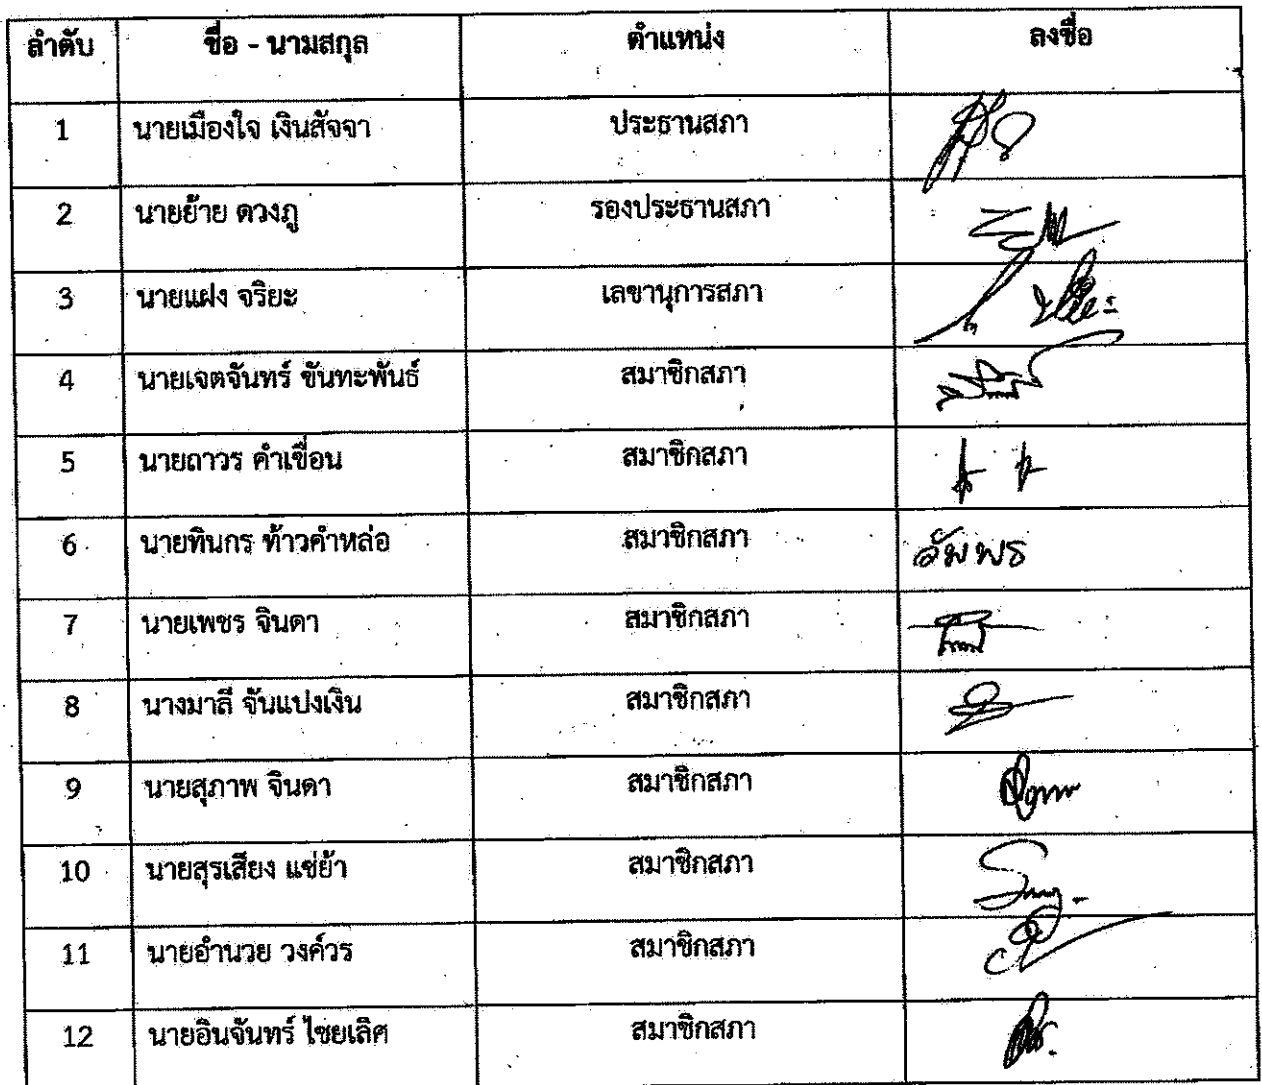 ลำดับ ชื่อ - นามสกุล ตำแหน่ง ลงชื่อ
1 นายเมืองใจ เงินสัจจา ประธานสภา
2 นายย้าย ดวงภู รองประธานสภา
3 นายแฝง จริยะ เลขานุการสภา
4 นายเจตจันทร์ ขันทะพันธ์ สมาชิกสภา
5 นายถาวร คำเขื่อน สมาชิกสภา
6 นายทินกร ท้าวคำหล่อ สมาชิกสภา
7 นายเพชร จินดา สมาชิกสภา
8 นางมาลี จันแปงเงิน สมาชิกสภา
9 นายสุภาพ จินดา สมาชิกสภา
10 นายสุรเสียง แซ่ย้า สมาชิกสภา
11 นายอำนวย วงค์วร สมาชิกสภา
12 นายอินจันทร์ ไชยเลิศ สมาชิกสภา